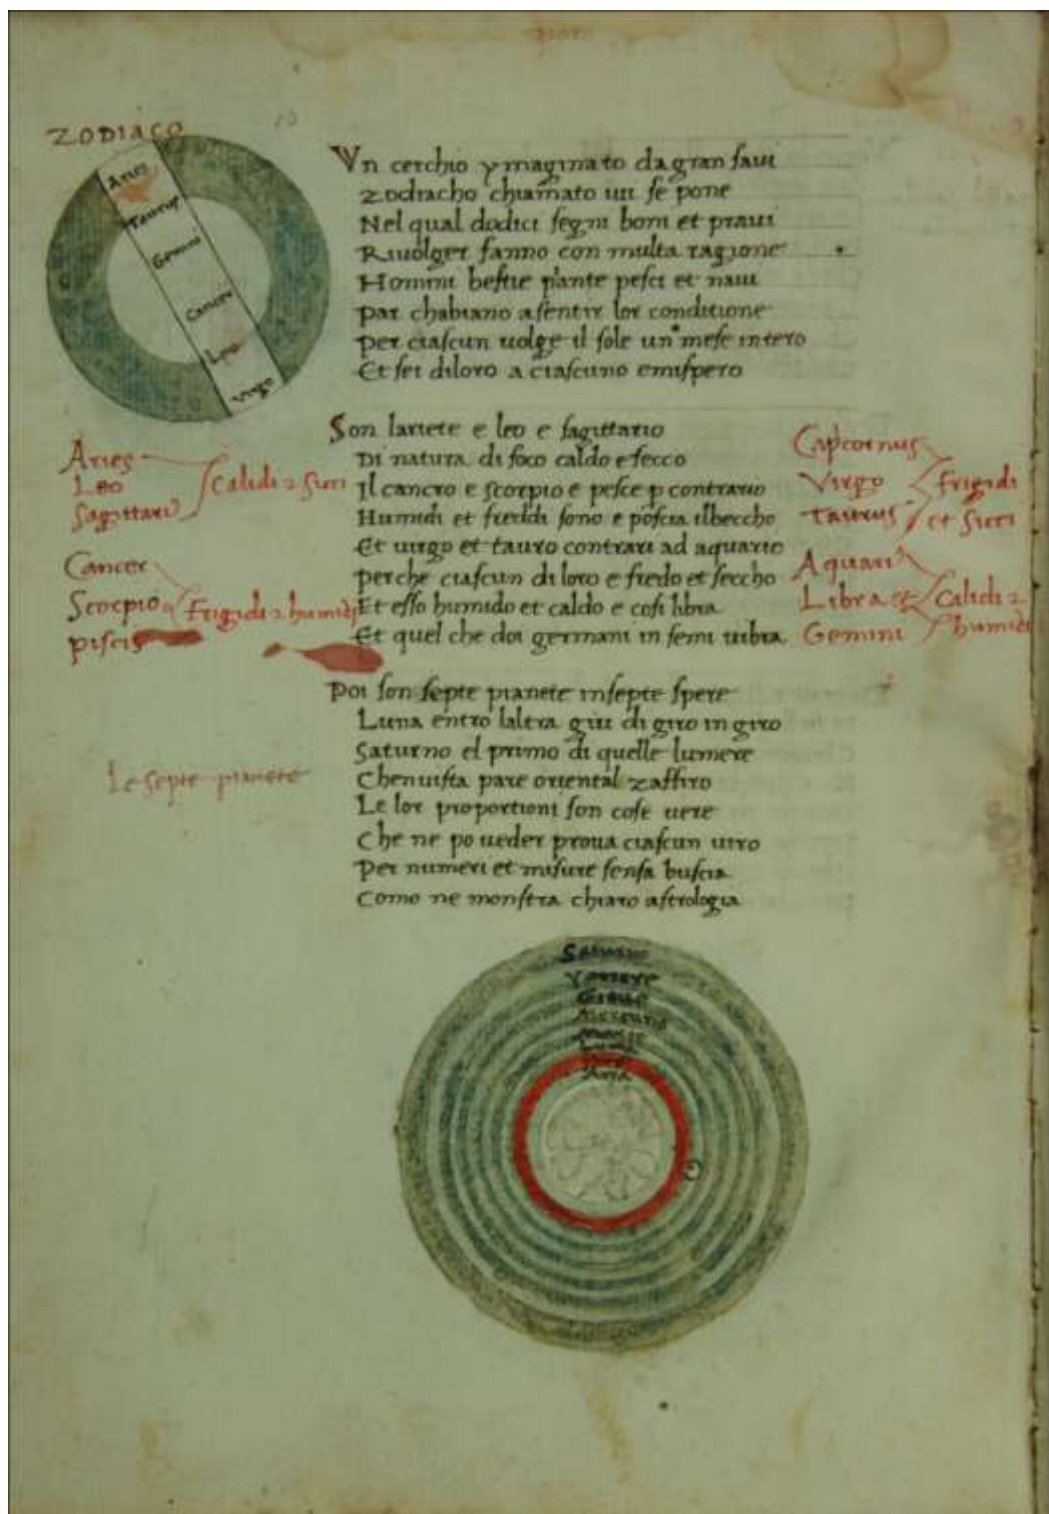 ZODIACO
Aries
Taurus
Gemini
Cancer
Leo
Virgo
Vn cerchio ymaginato da gran saui
Zodiacho chiamato ui se pone
Nel qual dodici segni boni et praui
Riuolger fanno con multa ragione
Homini bestie piante pesci et naui
Par chabiano a sentir lor conditione
Per ciascun uolge il sole un mese intero
Et sei di loro a ciascuno emispero
Son lariete e leo e sagittario
Di natura di foco caldo e secco
Il cancro e scorpio e pesce p contrario
Humidi et freddi sono e poscia il beccho
Et uirgo et tauro contrari ad aquario
perche ciascun di loro e fredo et seccho
Et esso humido et caldo e cosi libra
Et quel che doi germani in semi uibra
Aries
Leo
Sagittari9
Calidi 2 sicci
Cancer
Scorpio
Piscis
Frigidi 2 humidi
Capcornus
Virgo
Taurus
Frigidi
et sicci
Aquari9
Libra et
Gemini
Calidi 2
humidi
Poi son septe pianete in septe spere
Luna entro laltra giu di giro in giro
Saturno el primo di quelle lumere
Chenuista pare oriental zaffiro
Le lor proportioni son cose uere
Che ne po ueder proua ciascun uiro
Per numeri et misure sensa buscia
Como ne monstra chiaro astrologia
Le septe pianete
Saturno
Venere
Gioue
Mercurio
Marte
Luna